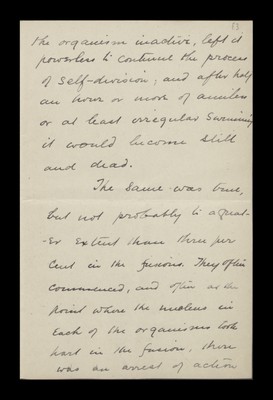 53
the organism inactive, left it
powerless to continue the process
of Self-division; and after half
an hour or more of aimless
or at least irregular Swimming
it would become still
and dead.
The same was true,
but not probably to a great-
-er extent than three per
Cent in the fusions. They often
Commenced, and often at the
point where the nucleus in
Each of the organisms took
part in the fusion, there
was an arrest of action